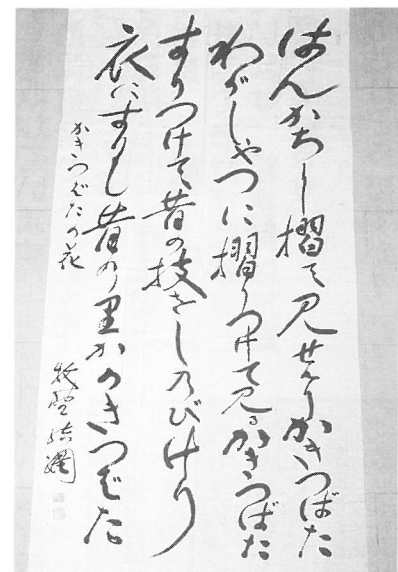 はんかちに摺て見せけりかきつばた
わがしやつに摺りつけて見るかきつばた
すりつけて昔の技をしのびけり
衣にすりし昔の里かかきつばた
かきつばたの花
牧野結網